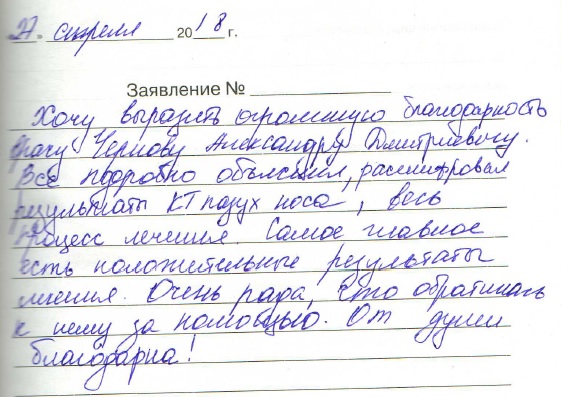 27. апреля 2018 г.
Заявление №
Хочу выразить огромную благодарность
врачу Чернову Александру Дмитриевичу.
Всё подробно объяснил, расшифровал
результаты КТ пазух носа, весь
процесс лечения. Самое главное
есть положительные результаты
лечения. Очень рада, что обратилась
к нему за помощью. От души
благодарна!